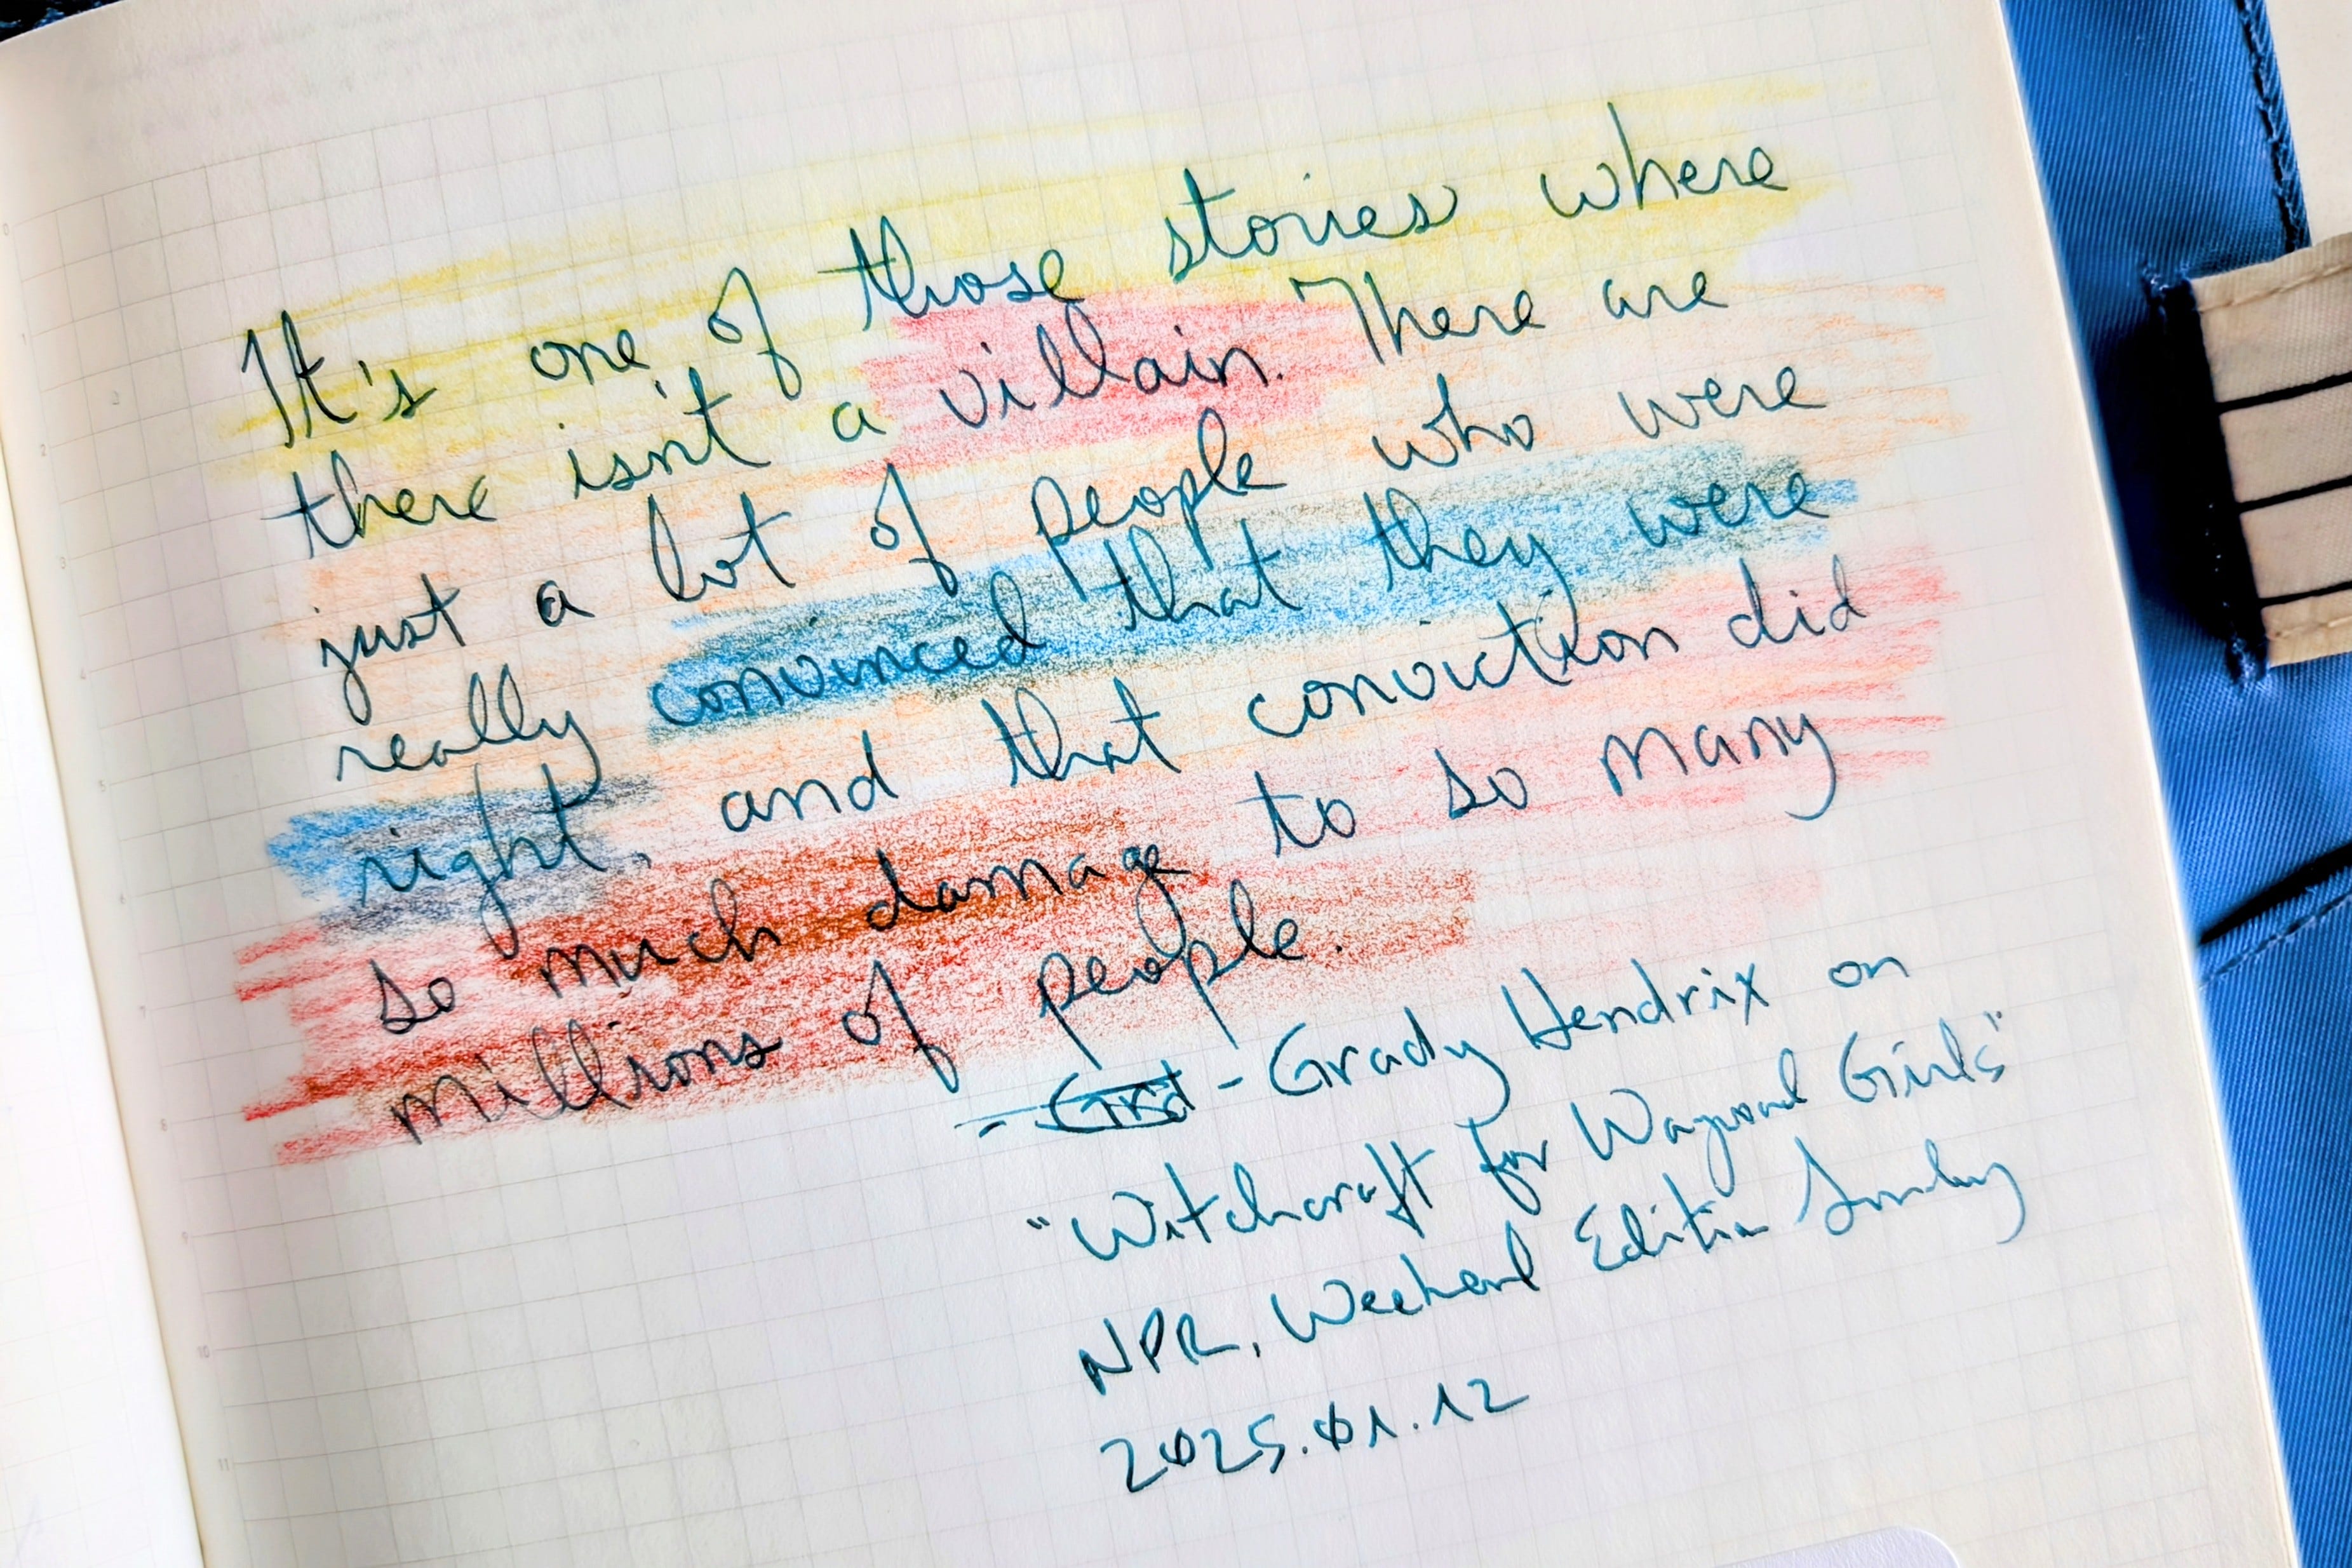 It's one of those stories where
there isn't a villain. There are
just a lot of people who were
really convinced that they were
right, and that conviction did
so much damage to so many
millions of people.
- Grady Hendrix on
"Witchcraft for Wayward Girls"
NPR, Weekend Edition Sunday
2025.01.12